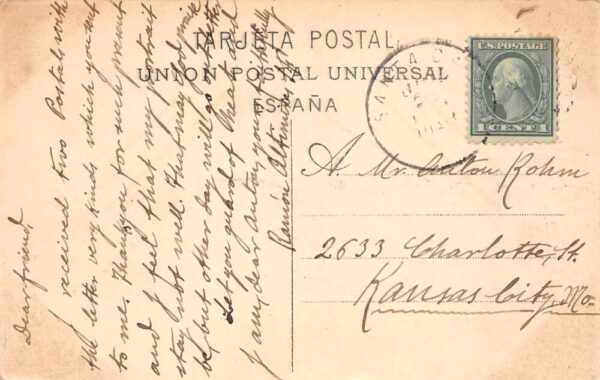 TARJETA POSTAL
UNION POSTAL UNIVERSAL
ESPAÑA
SANTA
U.S. POSTAGE
1 CENT 1
A. Mr. Anton Rohm
2633 Charlotte, St.
Kansas City, Mo.
Dear friend,
I received two Postals with
the letter very kinds which you sent
to me. Thank you for such present
and I feel that my portrait
stay not well. That may
be but other day will
let you guard of
I am, dear Anton, yours
Ramón